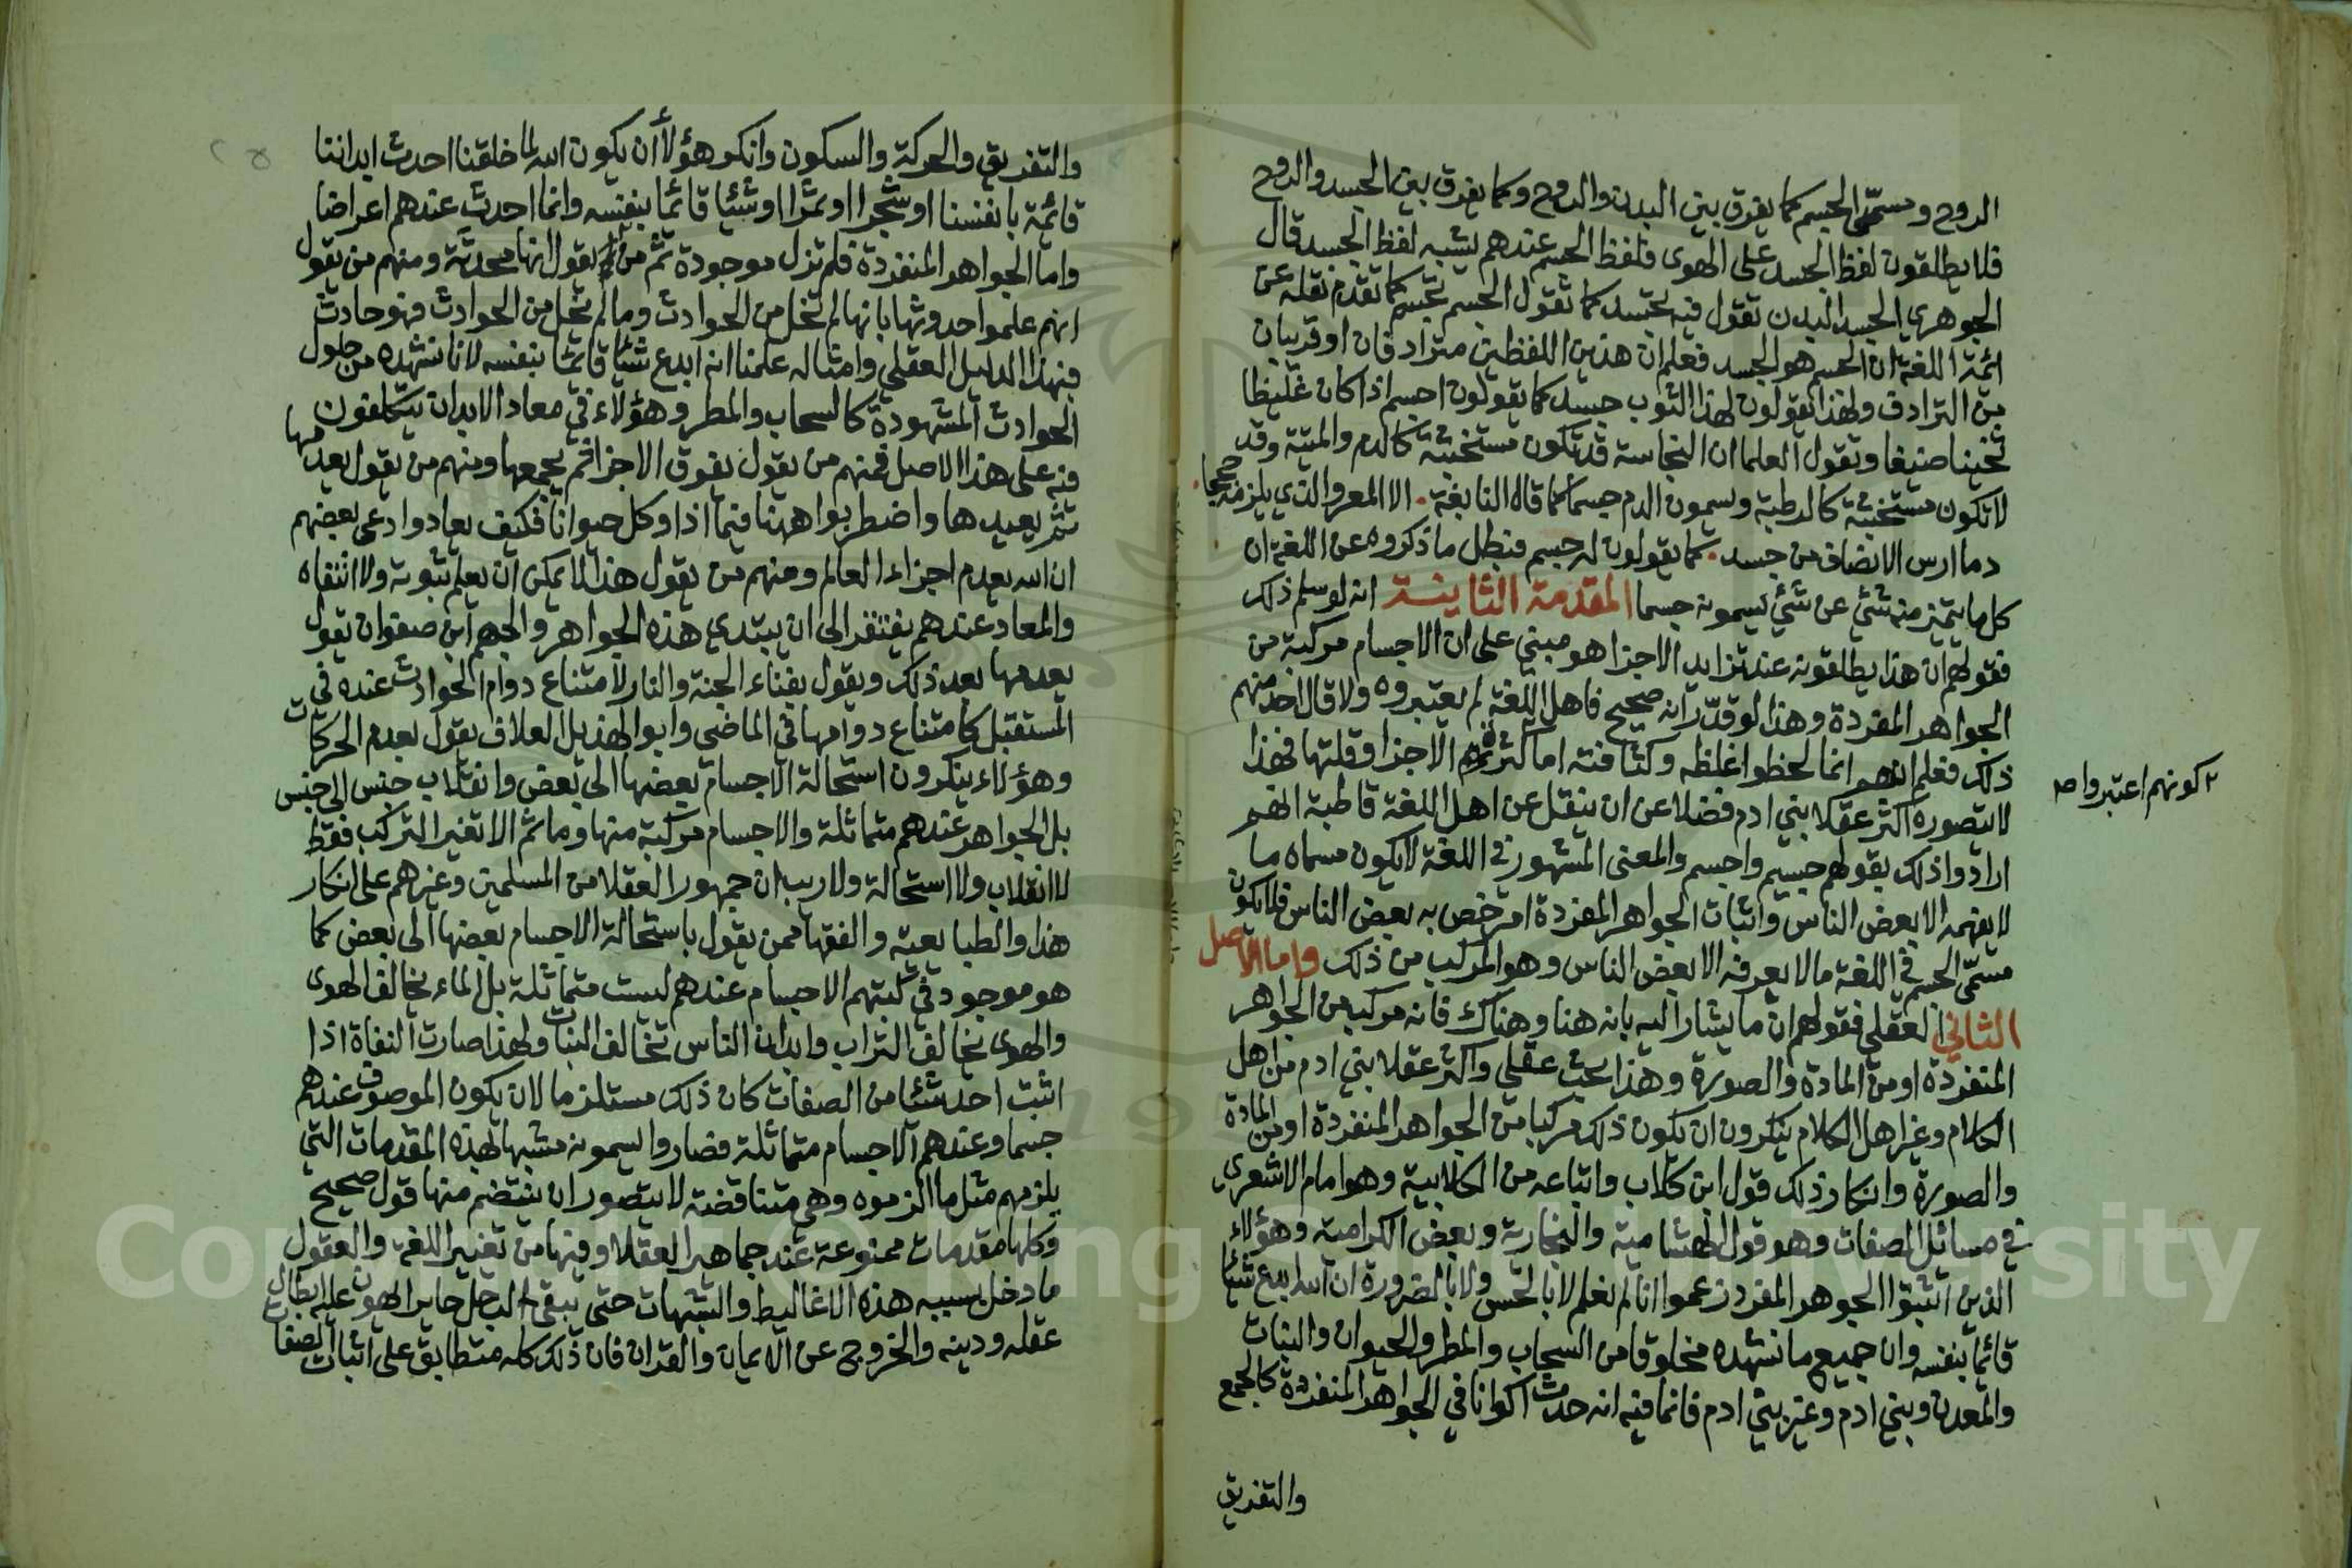 الروح ومسمّى الجسم كما يفرق بين البدن والروح وكما يفرق بين الجسد والروح
فلا يطلقون لفظ الجسد على الهوى فلفظ الجسم عندهم يشبه لفظ الجسد قال
الجوهري الجسد البدن تقول فيه تجسد كما تقول الجسم تجسم كما تقدم نقله عن
ائمة اللغة ان الجسم هو الجسد فعلم ان هذين اللفظين مترادفان او قريبان
من الترادف ولهذا يقولون لهذا الثوب جسد كما يقولون اجسم اذا كان غليظا
ثخينا صفيقا وتقول العلما ان النجاسة قد تكون مستخبثة كالدم والميتة وقد
لا تكون مستخبثة كالرطبة ويسمون الدم جسما كما قاله النابغة . الا لعمر والذي يلزمه حججا .
دما ارس الانضاف من جسد . كما يقولون له جسم فبطل ما ذكروه عن اللغة ان
كل ما يتميز منه شئ عن شئ يسمونه جسما المقدمة الثانية انه لو سلم ذلك
فقولهم ان هذا يطلقونه عند تزايد الاجزا هو مبني على ان الاجسام مركبة من
الجواهر المفردة وهذا لو قدّر انه صحيح فاهل اللغة لم يعتبروه ولا قال احد منهم
ذلك فعلم انهم انما لحظوا غلظه وكثافته اما كثرة الاجزا وقلتها فهذا
٢ كونهم اعتبروا صح
لا يتصوره اكثر عقلا بني ادم فضلا عن ان ينقل عن اهل اللغة قاطبة انهم
ارادوا ذلك بقولهم جسيم واجسم والمعنى المشهور في اللغة لا يكون مسماه ما
لا يفهمه الا بعض الناس واثبات الجواهر المفردة امر خص به بعض الناس فلا يكون
مسمّى الجسم في اللغة ما لا يعرفه الا بعض الناس وهو المركب من ذلك واما الاصل
الثاني العقلي فقولهم ان ما يشار اليه بانه هنا وهناك فانه مركب من الجواهر
المنفردة او من المادة والصورة وهذا بحث عقلي واكثر عقلا بني ادم من اهل
الكلام وغير اهل الكلام ينكرون ان يكون ذلك مركبا من الجواهر المنفردة او من المادة
والصورة وانكار ذلك قول ابن كلاب واتباعه من الكلابية وهو امام الاشعري
في مسائل الصفات وهو قول الهشامية والنجارية وبعض الكرامية وهؤلاء
الذين اثبتوا الجوهر المفرد زعموا انا لم نعلم لا بالحس ولا بالضرورة ان الله ابدع شيئا
قائما بنفسه وان جميع ما نشهده مخلوقا من السحاب والمطر والحيوان والنبات
والمعدن وبني ادم وغير بني ادم فانما فيه انه حدث اكوانا في الجواهر المنفردة كالجمع
والتفريق
والتفريق والحركة والسكون وانكر هؤلاء ان يكون الله لما خلقنا احدث ابداننا
قائمة بانفسنا او شجرا او ثمرا او شيئا قائما بنفسه وانما احدث عندهم اعراضا
واما الجواهر المنفردة فلم تزل موجودة ثم من يقول انها محدثة ومنهم من يقول
انهم علموا حدوثها بانها لم تخل من الحوادث وما لم تخل من الحوادث فهو حادث
فبهذا الدليل العقلي وامثاله علمنا انه ابدع شيئا قائما بنفسه لانا نشهده من حلول
الحوادث المشهودة كالسحاب والمطر وهؤلاء في معاد الابدان يتكلفون
فيه على هذا الاصل فمنهم من يقول يفرق الاجزا ثم يجمعها ومنهم من يقول يعدمها
ثم يعيدها واضطربوا ههنا فيما اذا اكل حيوانا فكيف يعاد وادعى بعضهم
ان الله يعدم اجزاء العالم ومنهم من يقول هذا لا يمكن ان يعلم ثبوته ولا انتفاه
والمعاد عندهم يفتقر الى ان يبتدي هذه الجواهر والجهم ابن صفوان يقول
يعدمها بعد ذلك ويقول بفناء الجنة والنار لامتناع دوام الحوادث عنده في
المستقبل كامتناع دوامها في الماضي وابو الهذيل العلاف يقول بعدم الحركات
وهؤلاء ينكرون استحالة الاجسام بعضها الى بعض وانقلاب جنس الى جنس
بل الجواهر عندهم متماثلة والاجسام مركبة منها وما ثم الا تغير التركيب فقط
لا انقلاب ولا استحالة ولا ريب ان جمهور العقلا من المسلمين وغيرهم على انكار
هذا والطبايعية والفقها ممن يقول باستحالة الاجسام بعضها الى بعض كما
هو موجود في كتبهم الاجسام عندهم ليست متماثلة بل الماء يخالف الهوى
والهوى يخالف التراب وابدان الناس تخالف النبات ولهذا صارت النفاة اذا
اثبت احد شيئا من الصفات كان ذلك مستلزما لان يكون الموصوف عندهم
جسما وعندهم الاجسام متماثلة فصاروا يسمونه مشبها لهذه المقدمات التي
يلزمهم مثل ما الزموه وهي متناقضة لا يتصور ان ينتضم منها قول صحيح
وكلها مقدمات ممنوعة عند جماهير العقلا وفيها من تغيير اللغة والعقول
ما دخل بسببه هذه الاغاليط والشبهات حتى يبقى الرجل حايرا لا يهون عليه ابطال
عقله ودينه والخروج عن الايمان والقران فان ذلك كله متطابق على اثبات الصفات